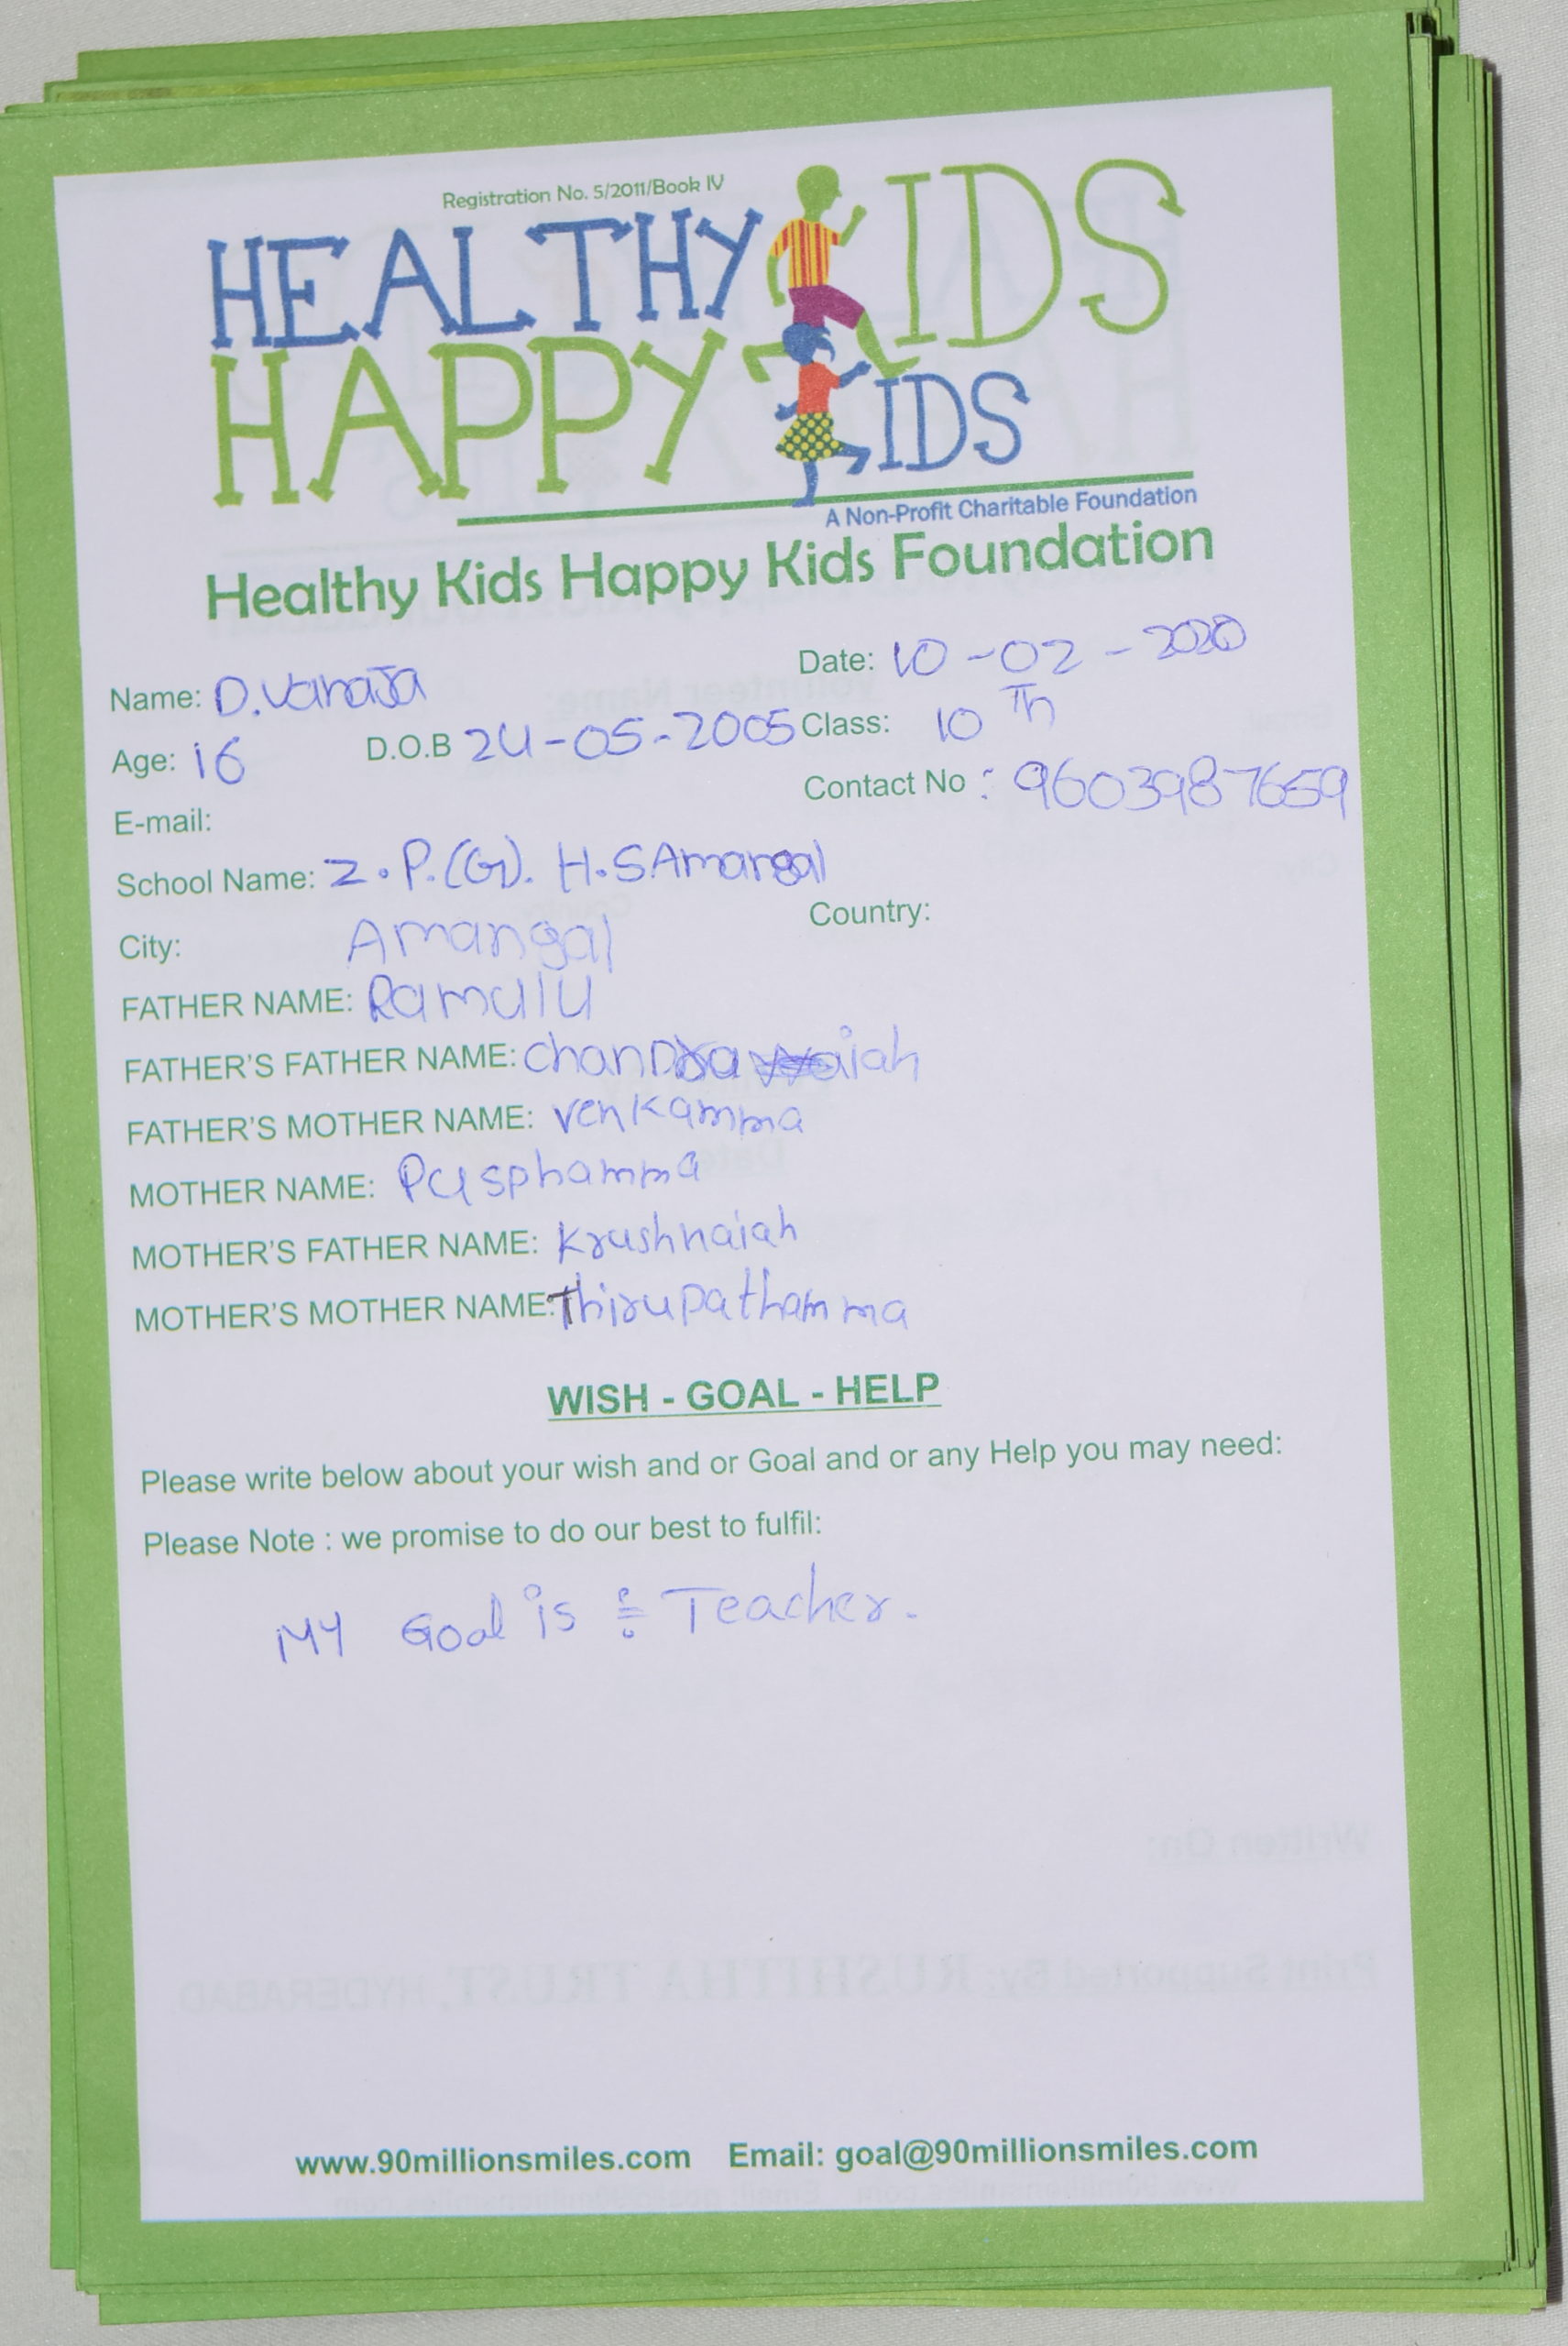 Registration No. 5/2011/Book IV
HEALTHY KIDS
HAPPY KIDS
A Non-Profit Charitable Foundation
Healthy Kids Happy Kids Foundation
Name: D.Vanaja Date: 10-02-2020
Age: 16 D.O.B 24-05-2005 Class: 10 Th
E-mail: Contact No : 9603987659
School Name: Z.P.(G). H.S Amangal
City: Amangal Country:
FATHER NAME: Ramulu
FATHER'S FATHER NAME: chandra iah
FATHER'S MOTHER NAME: venkamma
MOTHER NAME: Pusphamma
MOTHER'S FATHER NAME: Krushnaiah
MOTHER'S MOTHER NAME: Thirupathamma
WISH - GOAL - HELP
Please write below about your wish and or Goal and or any Help you may need:
Please Note : we promise to do our best to fulfil:
MY Goal is : Teacher.
www.90millionsmiles.com Email: goal@90millionsmiles.com